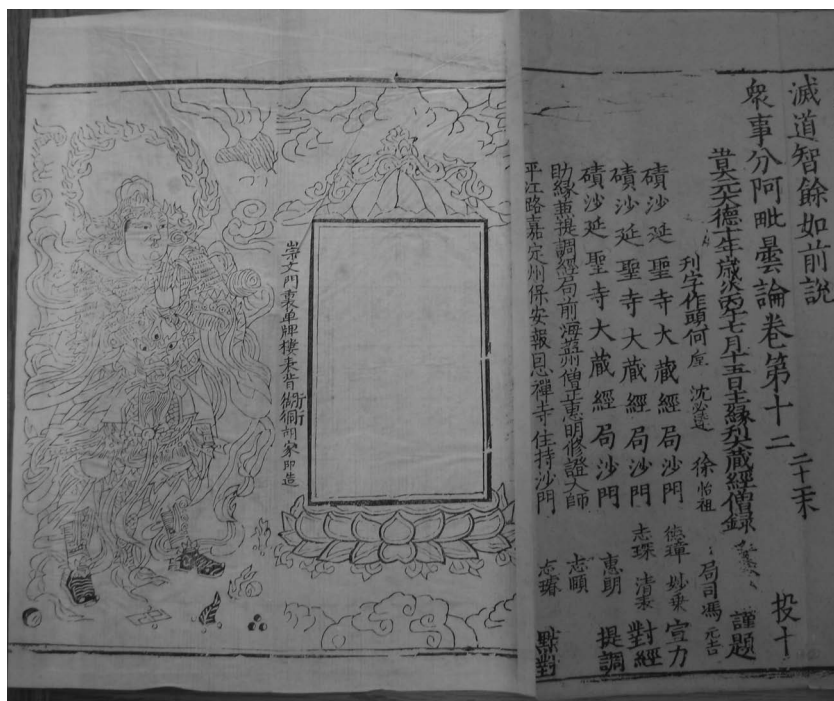 滅道智餘如前說
衆事分阿毗曇論卷第十二 二十末 投十
大元大德十年歲次丙午七月十五日主緣刊大藏經僧錄 謹題
刊字作頭何 沈 徐怡祖 局司馮元吉
磧沙延聖寺大藏經局沙門 德璋 妙乘 宣力
磧沙延聖寺大藏經局沙門 志琛 清表 對經
磧沙延聖寺大藏經局沙門 惠朗 提調
助緣兼提調經局前海 僧正惠明修證大師 志頤
平江路嘉定州保安報恩禪寺住持沙門 志璿 點對
崇文門裏單牌樓 衚衕胡家印造